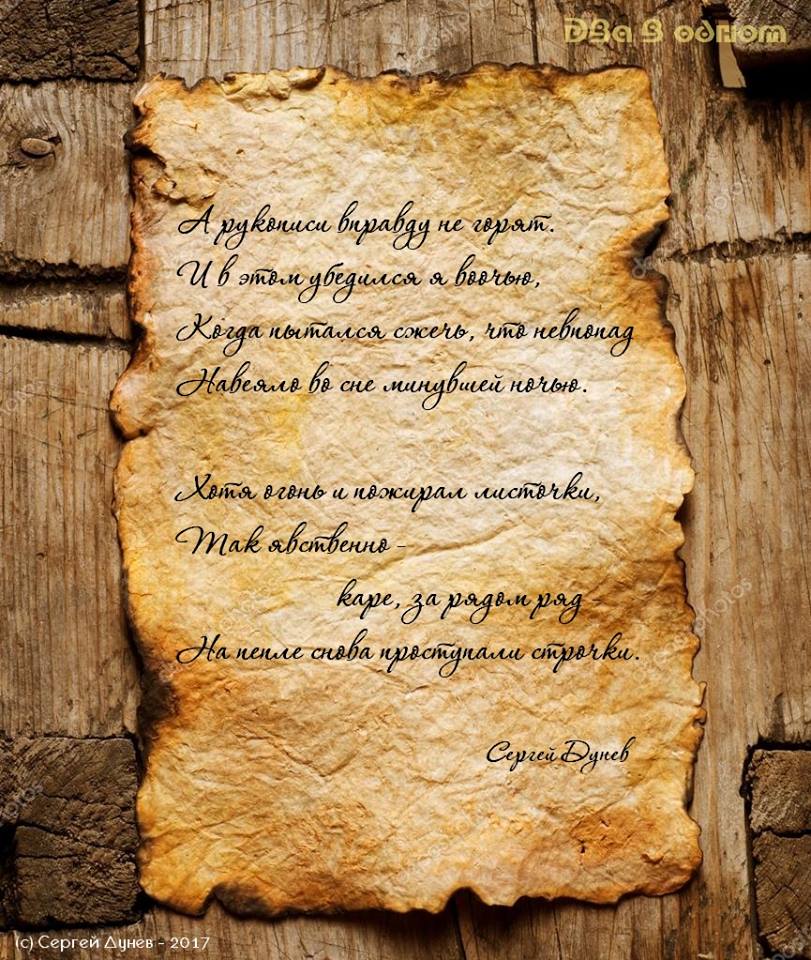 Два в одном
А рукописи вправду не горят.
И в этом убедился я воочью,
Когда пытался сжечь, что невпопад
Навеяло во сне минувшей ночью.
Хотя огонь и пожирал листочки,
Так явственно -
каре, за рядом ряд -
На пепле снова проступали строчки.
Сергей Дунев
(с) Сергей Дунев - 2017